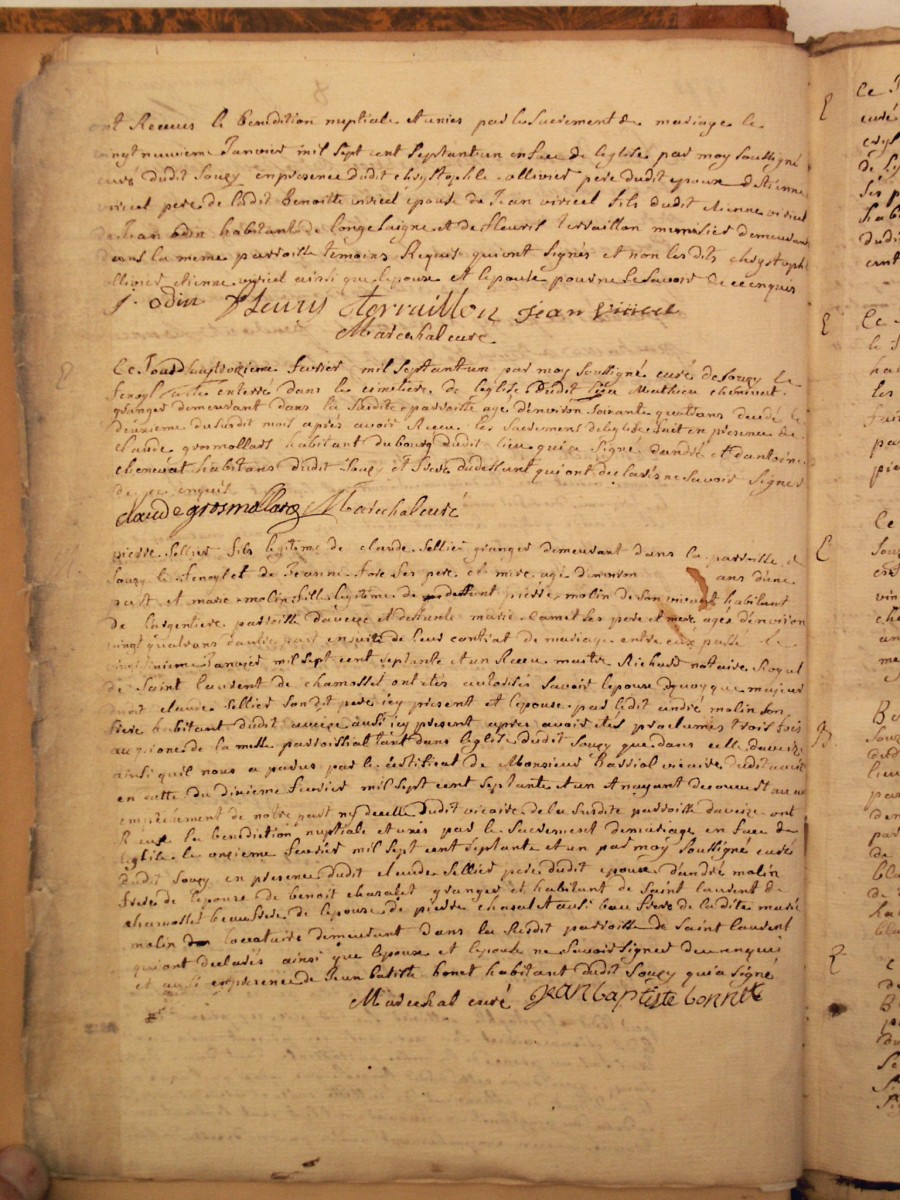 ont Receus la benediction nuptiale et unies par le Sacrement de mariage le
vingt neuvieme Janvier mil sept cent septantun en face de leglise par moy soussigné
curé dudit Souzy en presence dudit chrystophle ollivier pere dudit epoux d'Etienne
viricel pere de ladit Benoitte viricel epouse de Jean viricel fils dudit etienne viricel
de Jean odin habitant de longesaigne et de fleurii terraillon menusier demeurant
dans la meme parroisse temoins Requis qui ont signés et non lesdits chrystophle
ollivier etienne viricel ainsi que lepoux et lepouse pour ne le savoir de ce enquis
J. odin fleuris terraillon Jean viricel
Marechal curé
Ce Jourdhuy troisieme fevrier mil septantun par moy soussigné curé de Souzy le
fenoyl a eté enterré dans le cimetiere de leglise dudit lieu Mathieu chenevat
granger demeurant dans la susdite parroisse agé denviron soixante quatre ans decedé le
deuxieme du susdit mois apres avoir Receu les sacremens de leglise en presence de
claude grosmollard habitant du bourg dudit lieu qui a signé d'andré et d'antoine
chenevat habitans dudit Souzy et freres du deffunt qui ont declarés ne savoir signer
de ce enquis
claude grosmollard Marechal curé
pierre Sellier fils legitime de claude Sellier granger demeurant dans la parroisse de
Souzy le fenoyl et de Jeanne fore ses pere et mere agé denviron ans dune
part et marie molin fille legitime de deffunt pierre molin de son vivant habitant
de largentiere parroisse daveize et deffunte marie camet ses pere et mere agée denviron
vingt quatre ans dautre part ensuite de leur contrat de mariage entre eux passé le
Janvier mil sept cent septante et un Receu maitre Richard notaire Royal
de Saint laurent de chamosset ont etés autorisés savoir lepoux quoyque majeur
dudit claude Sellier son dit pere icy present et lepouse par ledit andré molin son
frere habitant dudit aveize aussi icy present apres avoir etés proclamés trois fois
au prone de la messe parroissial tant dans leglise dudit Souzy que dans celle daveize
ainsi quil nous a parus par le certificat de Monsieur Bassiol vicaire dudit aveize
en datte du dixieme fevrier mil sept cent septante et un nayant decouvert aucun
empechement de notre part ny de celle dudit vicaire de la susdite parroisse daveize ont
Receus la benediction nuptiale et unies par le sacrement de mariage en face de
leglise le onzieme fevrier mil sept cent septante et un par moy soussigné curé
dudit Souzy en presence dudit claude Sellier pere dudit epoux d'andré molin
frere de lepouse de benoit charalet granger et habitant de Saint laurent de
chamosset beaufrere de lepouse de pierre aussi beau frere de ladite marie
molin locataire demeurant dans la susdit parroisse de Saint laurent
qui ont declarés ainsi que lepoux et lepouse ne savoir signer de ce enquis
et aussi en presence de Jean batiste bonet habitant dudit Souzy qui a signé
Marechal curé Jean baptiste bonnet